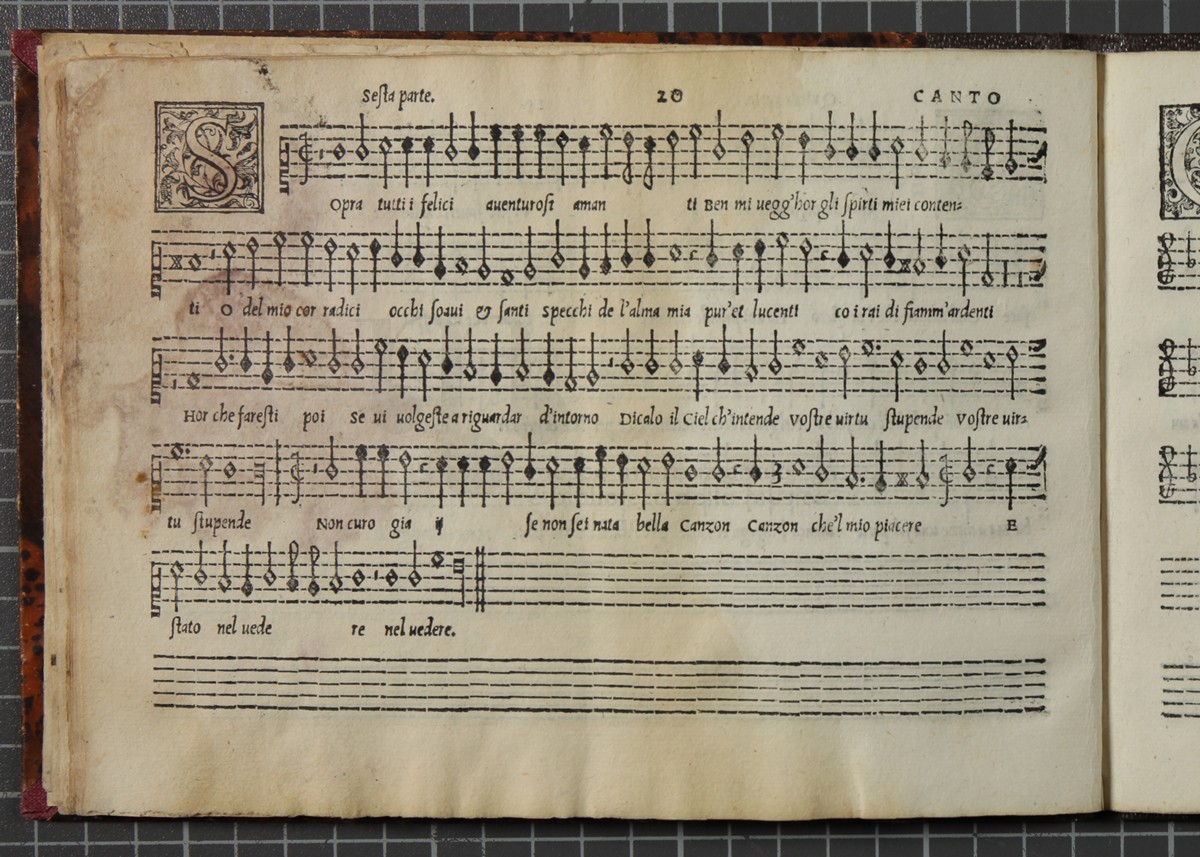 Sesta parte. 20 CANTO
SOpra tutti i felici auenturosi aman ti Ben mi uegg'hor gli spirti miei conten=
ti O del mio cor radici occhi soaui & santi Specchi de l'alma mia pur'et lucenti co i rai di fiamm'ardenti
Hor che faresti poi Se ui uolgeste a riguardar d'intorno Dicalo il Ciel ch'intende Vostre uirtu stupende Vostre uir=
tu stupende Non curo gia ij se non sei nata bella Canzon Canzon che'l mio piacere E
stato nel uede re nel uedere.